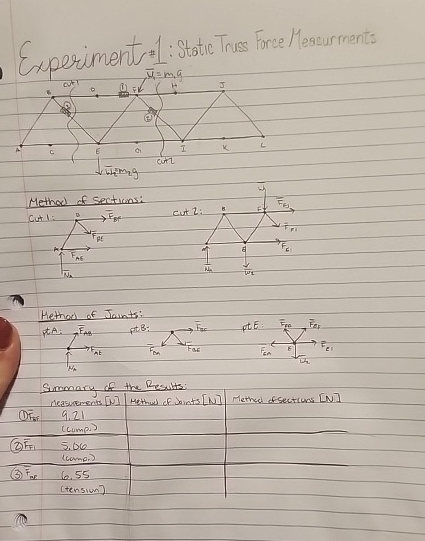 Experiment #1: Static Truss Force Measurments
W₁=m₁g
cut 1
B D F H J
A C E G I K L
W₂=m₂g
cut 2
Method of Sections:
Cut 1:
F_BF
F_BE
F_AE
N_A
cut 2:
F_FJ
F_FI
F_EI
N_A
W₂
Method of Joints:
pt A:
F_AB
F_AE
N_A
pt B:
F_BA
F_BE
pt E:
F_EA
F_EI
W₂
Summary of the Results:
Measurements [N] Method of Joints [N] Method of Sections [N]
① 9.21
(comp.)
② F_FI 5.06
(comp.)
③ 6.55
(tension)